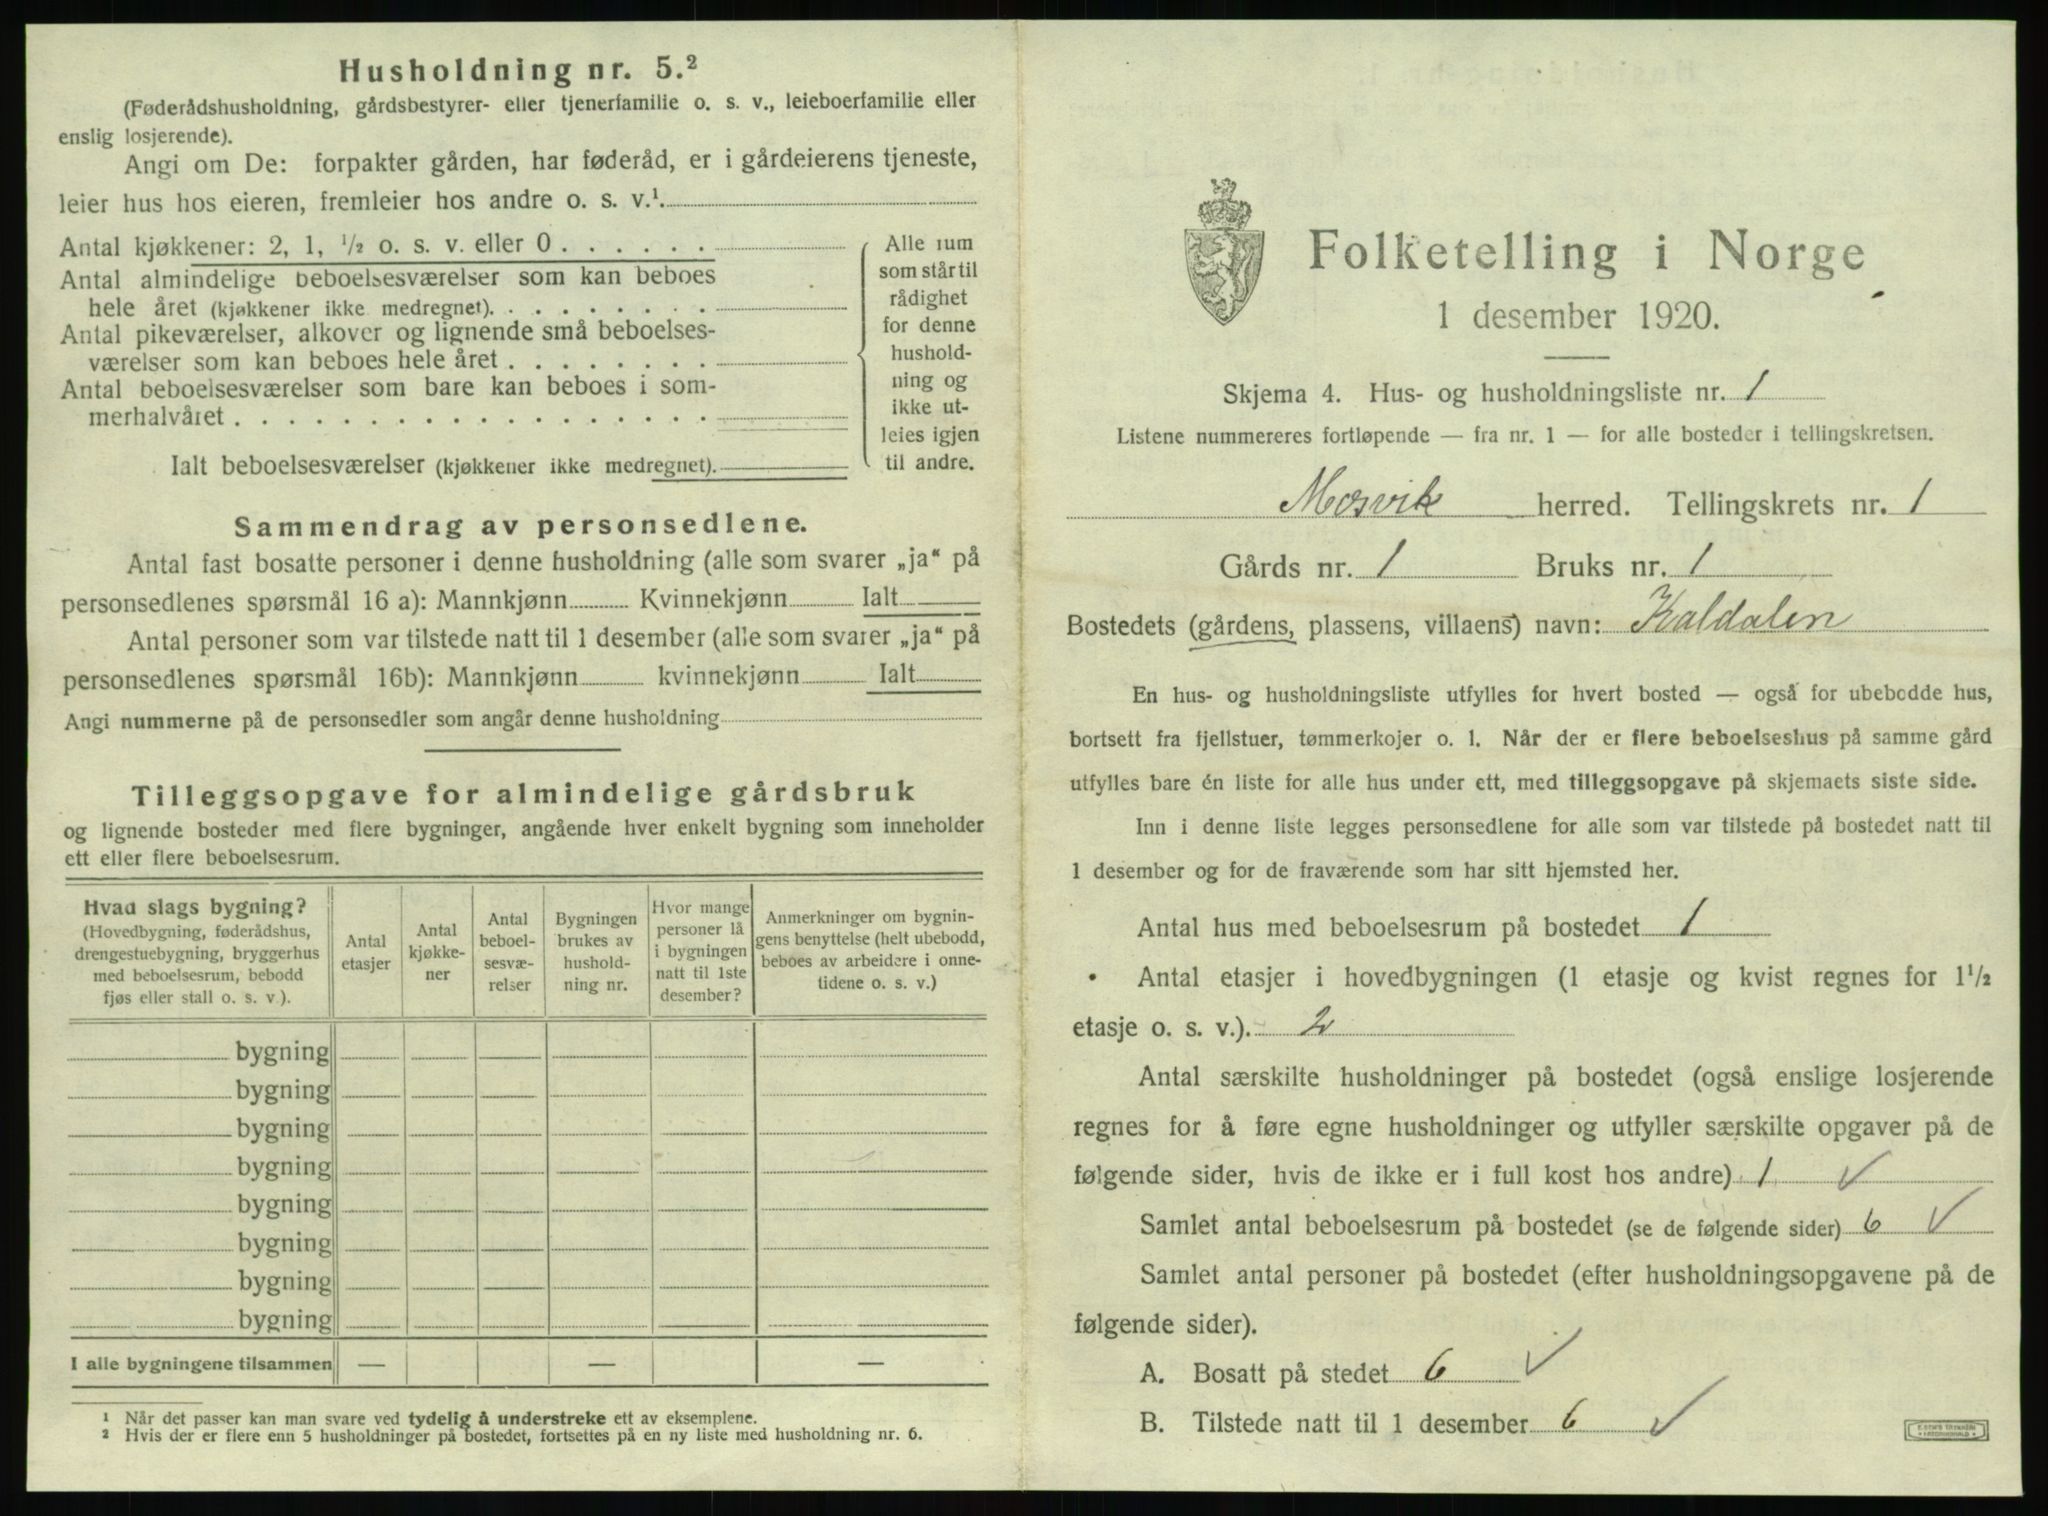 Husholdning nr. 5.²
(Føderådshusholdning, gårdsbestyrer- eller tjenerfamilie o. s. v., leieboerfamilie eller
enslig losjerende).
Angi om De: forpakter gården, har føderåd, er i gårdeierens tjeneste,
leier hus hos eieren, fremleier hos andre o. s. v.¹
Antal kjøkkener: 2, 1, ½ o. s. v. eller 0 . . . . . .
Antal almindelige beboelsesværelser som kan beboes
hele året (kjøkkener ikke medregnet). . . . . . . . .
Antal pikeværelser, alkover og lignende små beboelses-
værelser som kan beboes hele året . . . . . . . .
Antal beboelsesværelser som bare kan beboes i som-
merhalvåret . . . . . . . . . . . . . . . . . .
Ialt beboelsesværelser (kjøkkener ikke medregnet).
Alle rum
som står til
rådighet
for denne
hushold-
ning og
ikke ut-
leies igjen
til andre.
Sammendrag av personsedlene.
Antal fast bosatte personer i denne husholdning (alle som svarer „ja“ på
personsedlenes spørsmål 16 a): Mannkjønn Kvinnekjønn Ialt
Antal personer som var tilstede natt til 1 desember (alle som svarer „ja“ på
personsedlenes spørsmål 16b): Mannkjønn kvinnekjønn Ialt
Angi nummerne på de personsedler som angår denne husholdning
Tilleggsopgave for almindelige gårdsbruk
og lignende bosteder med flere bygninger, angående hver enkelt bygning som inneholder
ett eller flere beboelsesrum.
Hvad slags bygning?
(Hovedbygning, føderådshus,
drengestuebygning, bryggerhus
med beboelsesrum, bebodd
fjøs eller stall o. s. v.).
Antal
etasjer
Antal
kjøkke-
ner
Antal
beboel-
sesvæ-
relser
Bygningen
brukes av
hushold-
ning nr.
Hvor mange
personer lå
i bygningen
natt til 1ste
desember?
Anmerkninger om bygnin-
gens benyttelse (helt ubebodd,
beboes av arbeidere i onne-
tidene o. s. v.)
bygning
bygning
bygning
bygning
bygning
bygning
bygning
bygning
I alle bygningene tilsammen — — —
¹ Når det passer kan man svare ved tydelig å understreke ett av eksemplene.
² Hvis der er flere enn 5 husholdninger på bostedet, fortsettes på en ny liste med husholdning nr. 6.
Folketelling i Norge
1 desember 1920.
Skjema 4. Hus- og husholdningsliste nr. 1
Listene nummereres fortløpende — fra nr. 1 — for alle bosteder i tellingskretsen.
Mosvik herred. Tellingskrets nr. 1
Gårds nr. 1 Bruks nr. 1
Bostedets (gårdens, plassens, villaens) navn: Kaldalen
En hus- og husholdningsliste utfylles for hvert bosted — også for ubebodde hus,
bortsett fra fjellstuer, tømmerkojer o. l. Når der er flere beboelseshus på samme gård
utfylles bare én liste for alle hus under ett, med tilleggsopgave på skjemaets siste side.
Inn i denne liste legges personsedlene for alle som var tilstede på bostedet natt til
1 desember og for de fraværende som har sitt hjemsted her.
Antal hus med beboelsesrum på bostedet 1
Antal etasjer i hovedbygningen (1 etasje og kvist regnes for 1½
etasje o. s. v.). 2
Antal særskilte husholdninger på bostedet (også enslige losjerende
regnes for å føre egne husholdninger og utfyller særskilte opgaver på de
følgende sider, hvis de ikke er i full kost hos andre) 1 ✓
Samlet antal beboelsesrum på bostedet (se de følgende sider) 6 ✓
Samlet antal personer på bostedet (efter husholdningsopgavene på de
følgende sider).
A. Bosatt på stedet 6 ✓
B. Tilstede natt til 1 desember 6 ✓